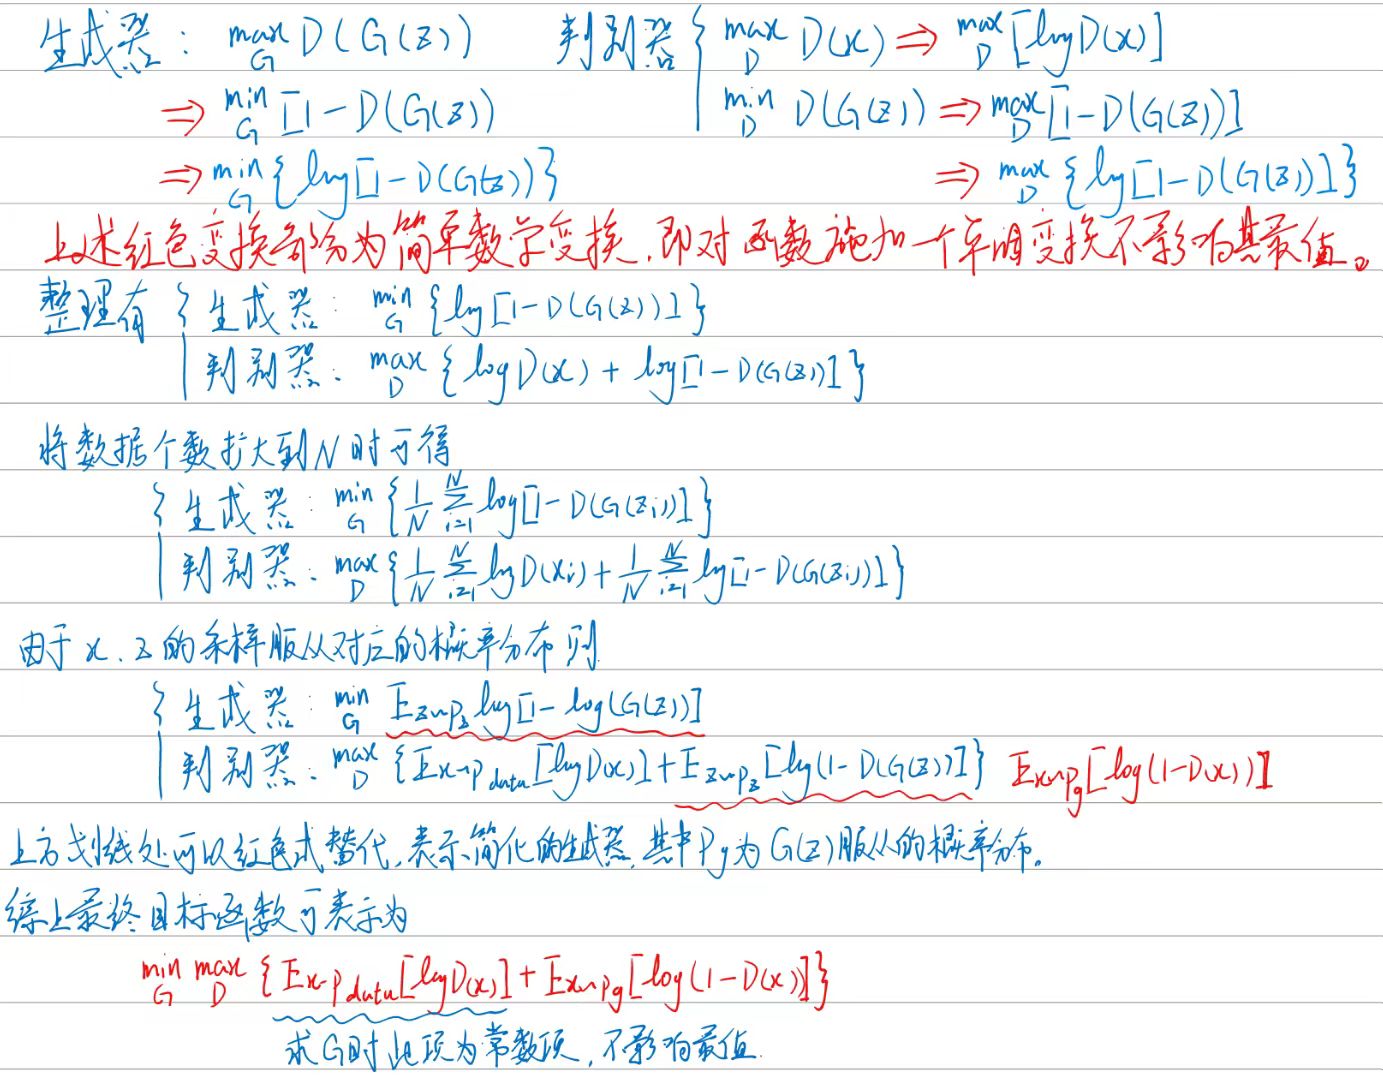 生成器: max_G D(G(z)) 判别器 { max_D D(x) ⇒ max_D [log D(x)]
⇒ min_G [1-D(G(z)) | min_D D(G(z)) ⇒ max_D [1-D(G(z))]
⇒ min_G {log[1-D(G(z))} ⇒ max_D {log[1-D(G(z))]}
上述红色变换部分为简单数学变换,即对函数施加一个单调变换不影响其最值。
整理有 { 生成器: min_G {log[1-D(G(z))]}
| 判别器: max_D {log D(x) + log[1-D(G(z))]}
将数据个数扩大到N时可得
{ 生成器: min_G {1/N Σ_{i=1}^N log[1-D(G(zi))]}
| 判别器: max_D {1/N Σ_{i=1}^N log D(xi) + 1/N Σ_{i=1}^N log[1-D(G(zi))]}
由于x、z的采样服从对应的概率分布则
{ 生成器: min_G E_{z~Pz} log[1-log(G(z))]
| 判别器: max_D {E_{x~Pdata}[log D(x)] + E_{z~Pz}[log(1-D(G(z))]} E_{x~Pg}[log(1-D(x))]
上方划线处可以红色式替代,表示简化的生成器,其中Pg为G(z)服从的概率分布。
综上最终目标函数可表示为
min_G max_D {E_{x~Pdata}[log D(x)] + E_{x~Pg}[log(1-D(x))]}
求G时此项为常数项,不影响最值.